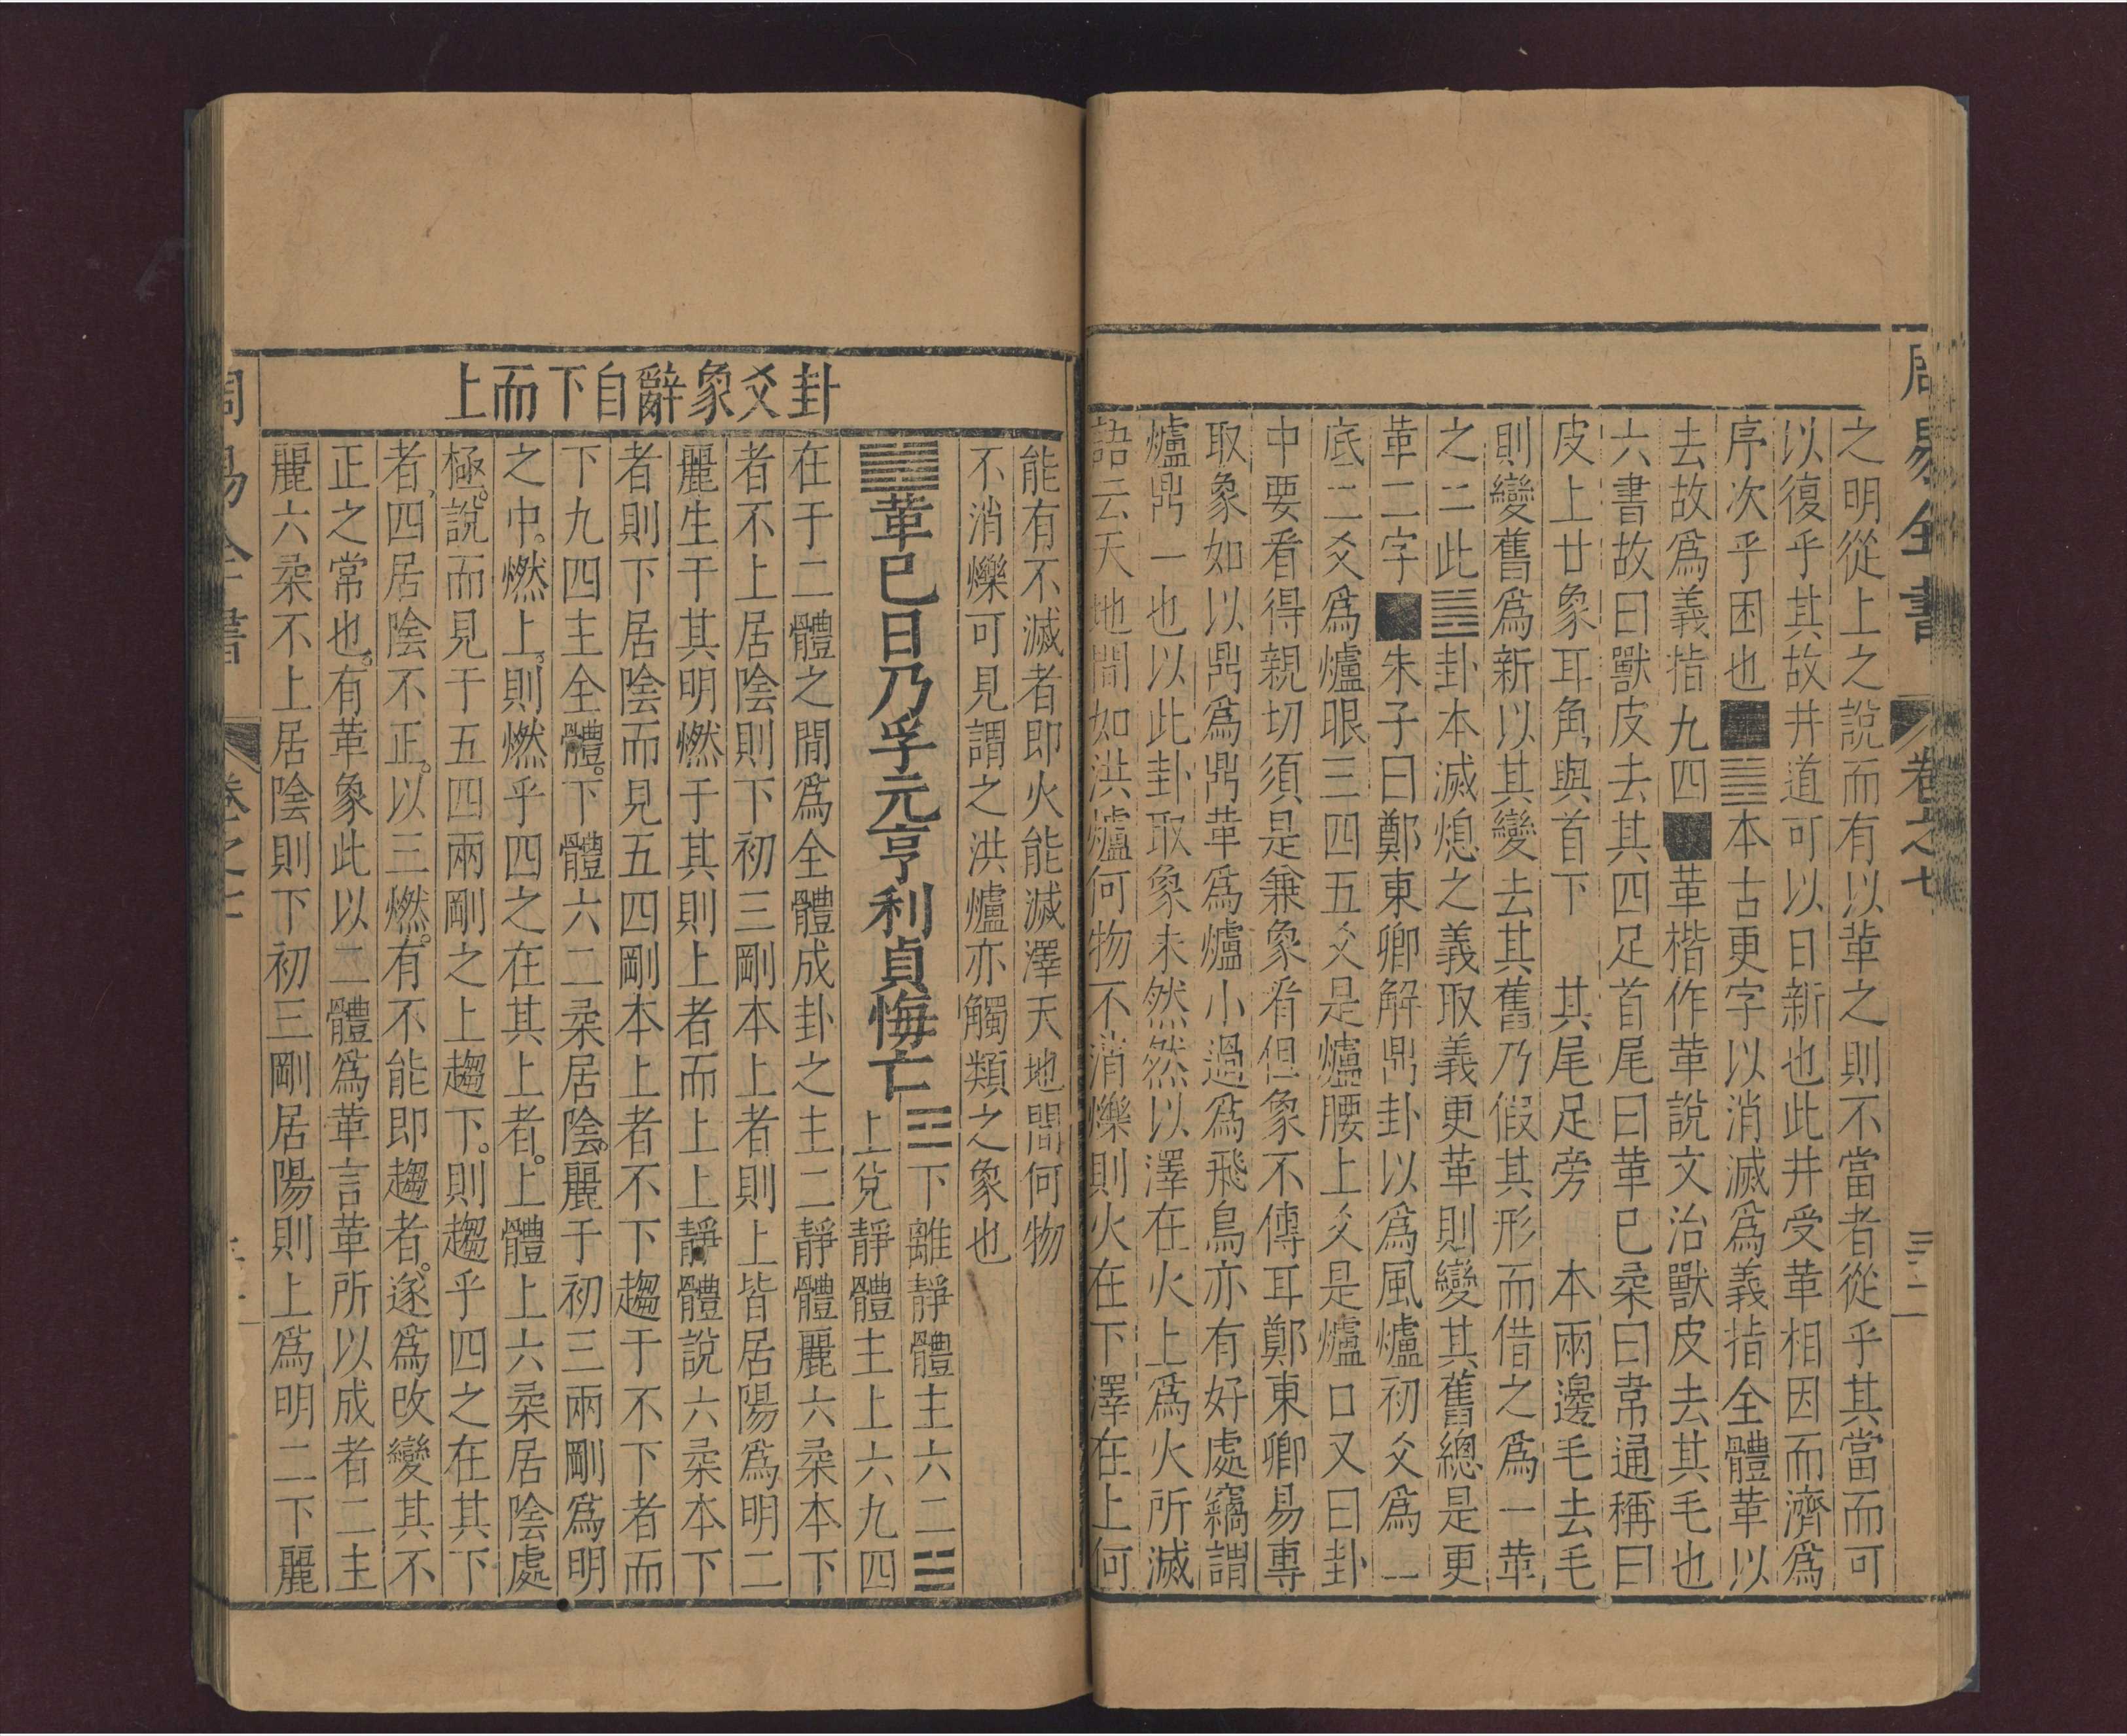 周易全書 卷之七 三十二
之明從上之說而有以革之則不當者從乎其當而可
以復乎其故井道可以日新也此井受革相因而濟爲
序次乎困也䷰本古更字以消滅爲義指全體革以
去故爲義指九四革楷作革說文治獸皮去其毛也
六書故曰獸皮去其四足首尾曰革已柔曰韋通稱曰
皮上廿象耳角與首下 其尾足旁 本兩邊毛去毛
則變舊爲新以其變去其舊乃假其形而借之爲一革
之二此䷰卦本滅熄之義取義更革則變其舊總是更
革二字朱子曰鄭東卿解鼎卦以爲風爐初爻爲
底二爻爲爐眼三四五爻是爐腰上爻是爐口又曰卦
中要看得親切須是兼象看但象不傳耳鄭東卿易專
取象如以鼎爲鼎革爲爐小過爲飛鳥亦有好處竊謂
爐鼎一也以此卦取象未然然以澤在火上爲火所滅
語云天地間如洪爐何物不消爍則火在下澤在上何
卦爻象辭自下而上
能有不滅者即火能滅澤天地間何物
不消爍可見謂之洪爐亦觸類之象也
䷰革已日乃孚元亨利貞悔亡☲下離靜體主六二☱
上兌靜體主上六九四
在于二體之間爲全體成卦之主二靜體麗六柔本下
者不上居陰則下初三剛本上者則上皆居陽爲明二
麗生于其明燃于其則上者而上上靜體說六柔本下
者則下居陰而見五四剛本上者不下趨于不下者而
下九四主全體。下體六二柔居陰。麗于初三兩剛爲明
之中。燃上。則燃乎四之在其上者。上體上六柔居陰處
極。說而見于五四兩剛之上趨下。則趨乎四之在其下
者，四居陰不正。以三燃。有不能即趨者。遂爲改變其不
正之常也。有革象此以二體爲革言革所以成者二主
麗六柔不上居陰則下初三剛居陽則上爲明二下麗
周易全書 卷之七